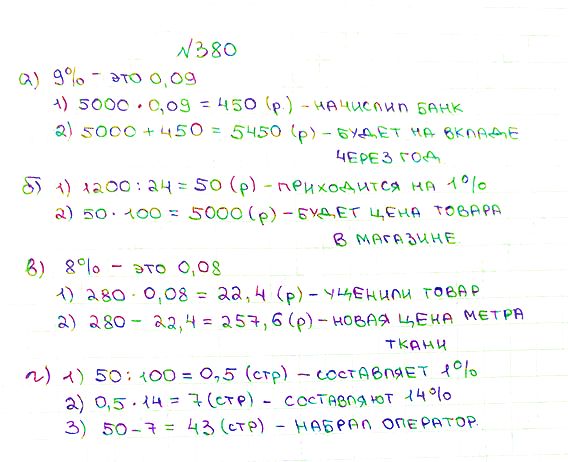 №380
а) 9% - это 0,09
1) 5000 · 0,09 = 450 (р.) - начислил банк
2) 5000 + 450 = 5450 (р) - будет на вкладе
через год
б) 1) 1200 : 24 = 50 (р) - приходится на 1%
2) 50 · 100 = 5000 (р) - будет цена товара
в магазине
в) 8% - это 0,08
1) 280 · 0,08 = 22,4 (р) - уценили товар
2) 280 - 22,4 = 257,6 (р) - новая цена метра
ткани
г) 1) 50 : 100 = 0,5 (стр) - составляет 1%
2) 0,5 · 14 = 7 (стр) - составляют 14%
3) 50 - 7 = 43 (стр) - набрал оператор.